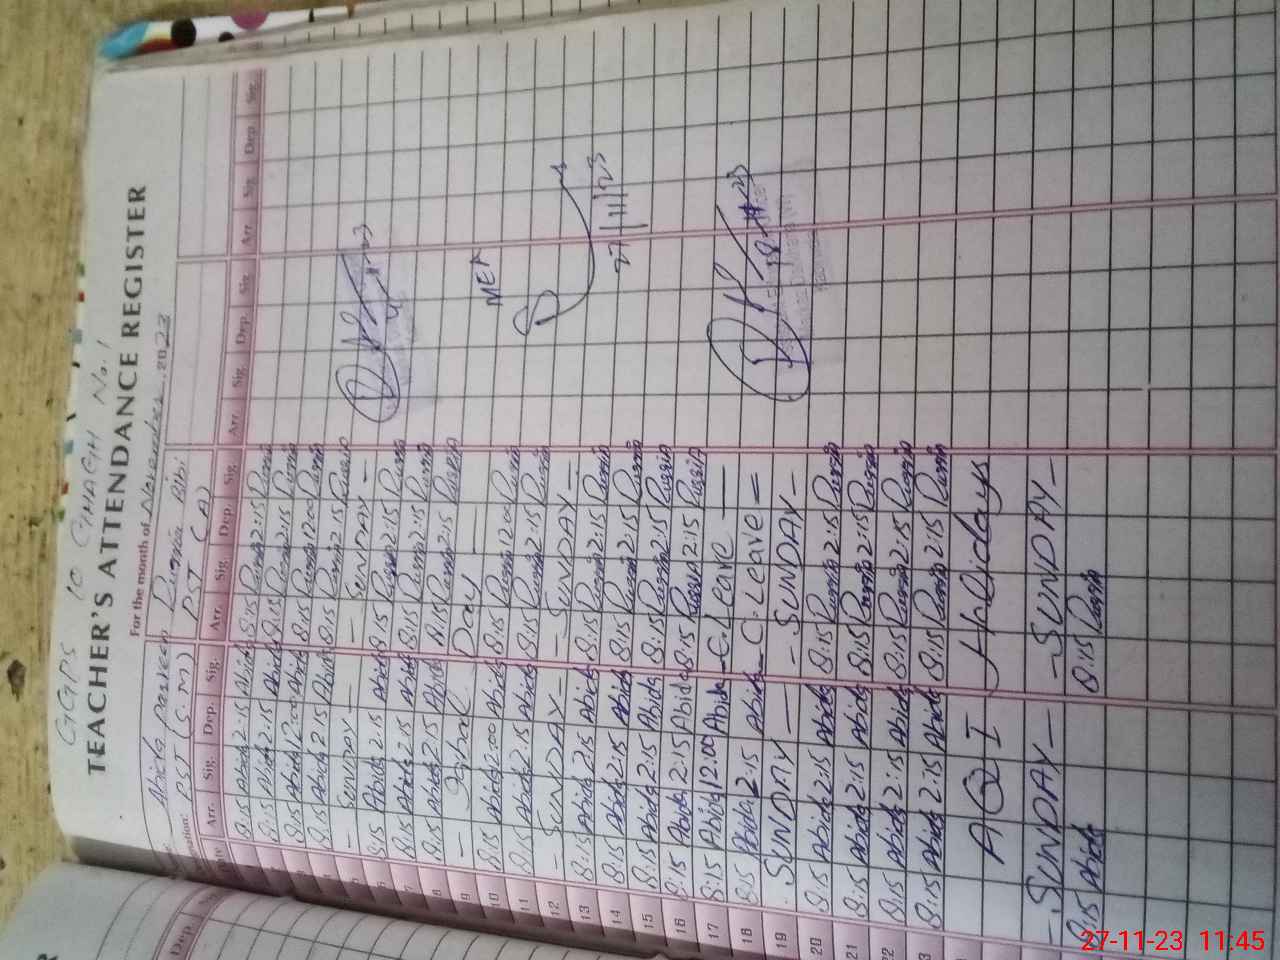 GGPS 10 CHAGH No. 1
TEACHER'S ATTENDANCE REGISTER
For the month of November 2023
Abida Parveen Ruqia Bibi
PST (S.M) PST (A)
Date Arr. Sig. Dep. Sig. Arr. Sig. Dep. Sig. Arr. Sig. Dep. Sig. Arr. Sig. Dep. Sig.
8:15 Abida 2:15 Abida 8:15 Ruqia 2:15 Ruqia
8:15 Abida 2:15 Abida 8:15 Ruqia 2:15 Ruqia
8:15 Abida 12:00 Abida 8:15 Ruqia 12:00 Ruqia
8:15 Abida 2:15 Abida 8:15 Ruqia 2:15 Ruqia
5 — SUNDAY — — SUNDAY —
6 8:15 Abida 2:15 Abida 8:15 Ruqia 2:15 Ruqia
7 8:15 Abida 2:15 Abida 8:15 Ruqia 2:15 Ruqia
8 8:15 Abida 2:15 Abida 8:15 Ruqia 2:15 Ruqia
9 — Iqbal Day —
10 8:15 Abida 12:00 Abida 8:15 Ruqia 12:00 Ruqia
11 8:15 Abida 2:15 Abida 8:15 Ruqia 2:15 Ruqia
12 — SUNDAY — — SUNDAY —
13 8:15 Abida 2:15 Abida 8:15 Ruqia 2:15 Ruqia
14 8:15 Abida 2:15 Abida 8:15 Ruqia 2:15 Ruqia
15 8:15 Abida 2:15 Abida 8:15 Ruqia 2:15 Ruqia
16 8:15 Abida 2:15 Abida 8:15 Ruqia 2:15 Ruqia
17 8:15 Abida 12:00 Abida — C. Leave —
18 8:15 Abida 2:15 Abida — C. Leave —
19 SUNDAY — — SUNDAY —
20 8:15 Abida 2:15 Abida 8:15 Ruqia 2:15 Ruqia
21 8:15 Abida 2:15 Abida 8:15 Ruqia 2:15 Ruqia
22 8:15 Abida 2:15 Abida 8:15 Ruqia 2:15 Ruqia
8:15 Abida 2:15 Abida 8:15 Ruqia 2:15 Ruqia
A Q I Holidays
— SUNDAY — — SUNDAY —
8:15 Abida 8:15 Ruqia
MEA
27/11/23
27-11-23 11:45